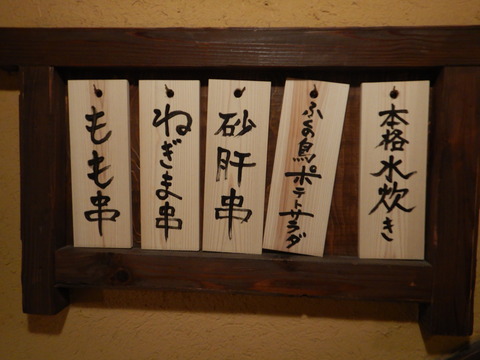 本格水炊き
ふくの鳥ポテトサラダ
砂肝串
ねぎま串
もも串